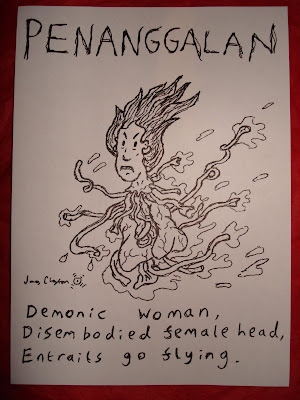 PENANGGALAN
James Clayton
Demonic woman,
Disembodied female head,
Entrails go flying.